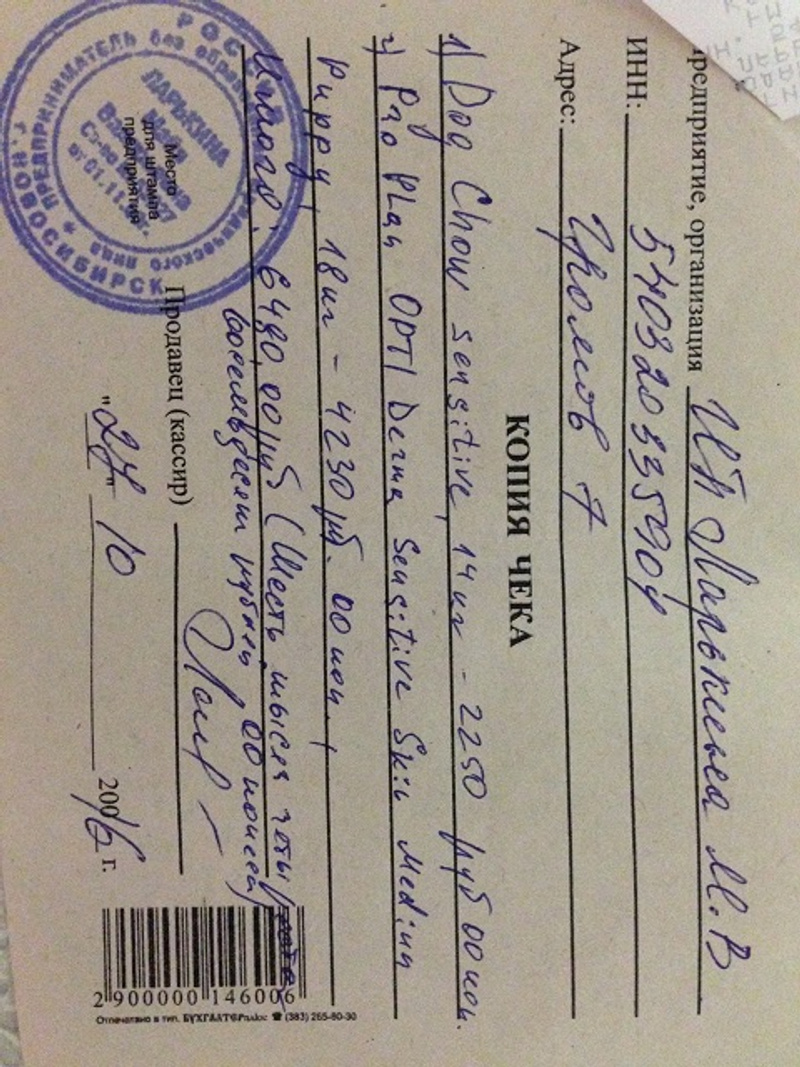 предприятие, организация ИП Ларькина М.В
ИНН: 540320335904
Адрес: Громов 7
КОПИЯ ЧЕКА
1) Dog Chow sensitive, 14кг - 2250 руб 00 коп.
2) Pro Plan OPTI Derma Sensitive Skin Medium
Puppy, 18кг - 4230 руб. 00 коп.,
Итого: 6480,00 руб (Шесть тысяч четыреста
восемьдесят рублей 00 копеек)
Продавец (кассир)
"27" 10 2006 16 г.
Место
для штампа
предприятия
РОС
ПРЕДПРИНИМАТЕЛЬ без образ
дического лица
г. НОВОСИБИРСК
ЛАРЬКИНА
от 01.11.
2 900000 146006
Отпечатано в тип. БУХГАЛТЕРплюс ☎ (383) 265-80-30